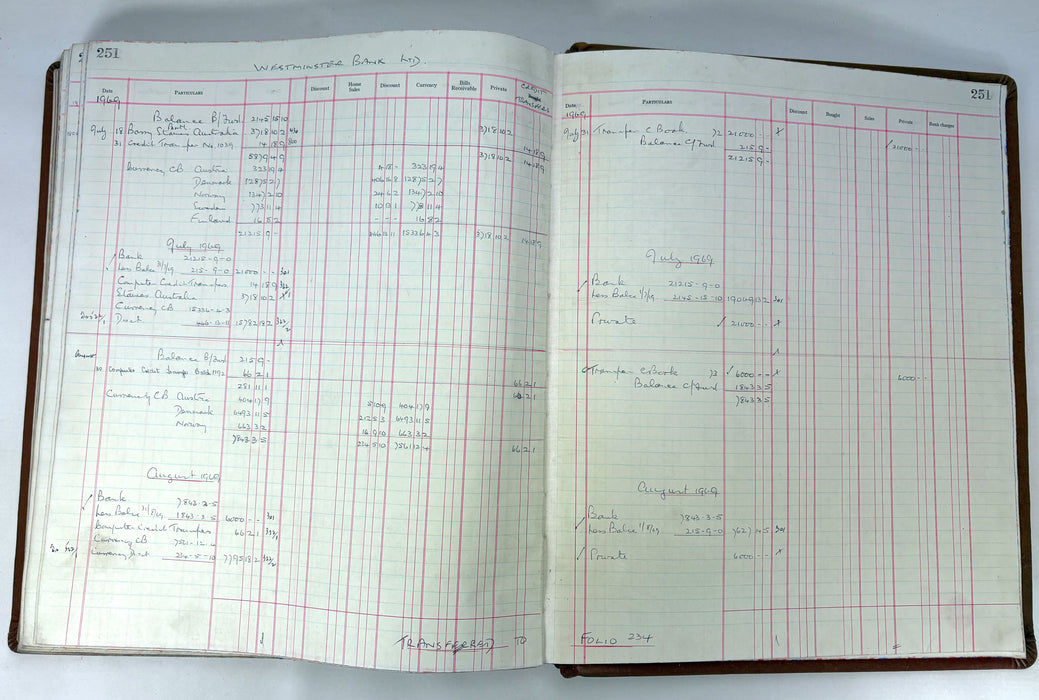 251
WESTMINSTER BANK LTD.
Date PARTICULARS Discount Home Sales Discount Currency Bills Receivable Private CREDIT TRANSFERS
1969
Balance B/Fwd 2145 15 10
July 18 Australia 3718 10 2 3718 10 2
31 Credit Transfer No 1039. 14 18 9 14 18 9
5879 4 9 3718 10 2 14 18 9
Currency CB Austria 323 19 4 323 19 4
Denmark 12875 2 7 12875 2 7
Norway 1347 2 10 24 6 2 1347 2 10
Sweden 773 11 4 10 13 1 773 11 4
Finland 16 8 2 - - - 16 8 2
21215 9 - 15336 4 3 3718 10 2 14 18 9
July 1969
Bank 21215-9-0
Less Balce 31/7/69 215-9-0 21000 - -
Computer Credit Transfers 14 18 9
Australia 3718 10 2
Currency CB 15336-4-3
Disct 15782 18 2
August Balance B/Fwd 215 9 -
66 2 1 66 2 1
281 11 1 66 2 1
Currency CB Austria 404 17 9 5 10 9 404 17 9
Denmark 6493 11 5 212 5 3 6493 11 5
Norway 663 3 2 16 9 10 663 3 2
7843 3 5 234 5 10 7561 12 4 66 2 1
August 1969
Bank 7843-3-5
Less Balce 31/8/69 1843-3-5 6000 - -
Computer Credit Transfers 66 2 1
Currency CB 7561-12-4
Currency Disct 234-5-10 7795 18 2
TRANSFERRED TO
251
Date PARTICULARS Discount Bought Sales Private Bank charges
1969
July 31 Transfer C Book 72 21000 - - 21000 - -
Balance C/Fwd 215 9 -
21215 9 -
July 1969
Bank 21215-9-0
Less Balce 1/7/69 2145-15-10 19069 13 2
Private 21000 - -
Transfer C Book 72 6000 - - 6000 - -
Balance C/Fwd 1843 3 5
7843 3 5
August 1969
Bank 7843-3-5
Less Balce 1/8/69 215-9-0 7627 14 5
Private 6000 - -
FOLIO 234